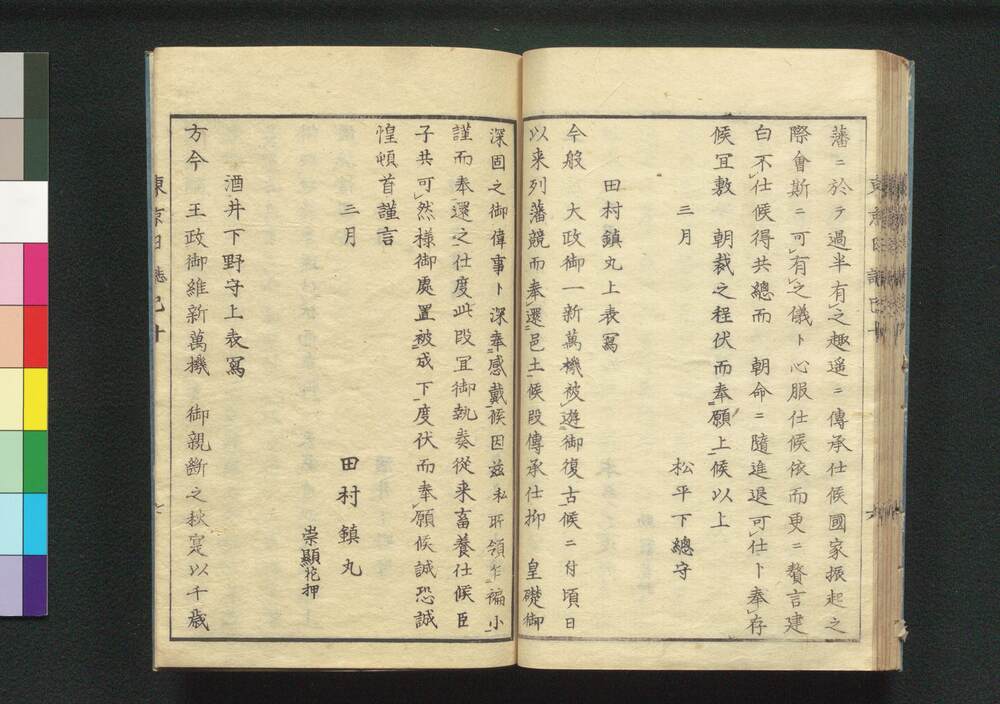 藩ニ於テ過半有之趣遥ニ傳承仕候國家振起之
際會斯ニ可有之儀ト心服仕候依而更ニ贅言建
白不仕候得共總而　朝命ニ隨進退可仕ト奉存
候宜敷　朝裁之程伏而奉願上候以上
三月
松平下總守
田村鎮丸上表寫
今般　大政御一新萬機被遊御復古候ニ付頃日
以来列藩競而奉還邑土候段傳承仕抑　皇礎御
深固之御偉事ト深奉感戴候因兹私所領乍褊小
謹而奉還之仕度此段宜御執奏從来畜養仕候臣
子共可然様御處置被成下度伏而奉願候誠恐誠
惶頓首謹言
三月
田村鎮丸
崇顯花押
酒井下野守上表寫
方今　王政御維新萬機　御親斷之秋寔以千歳